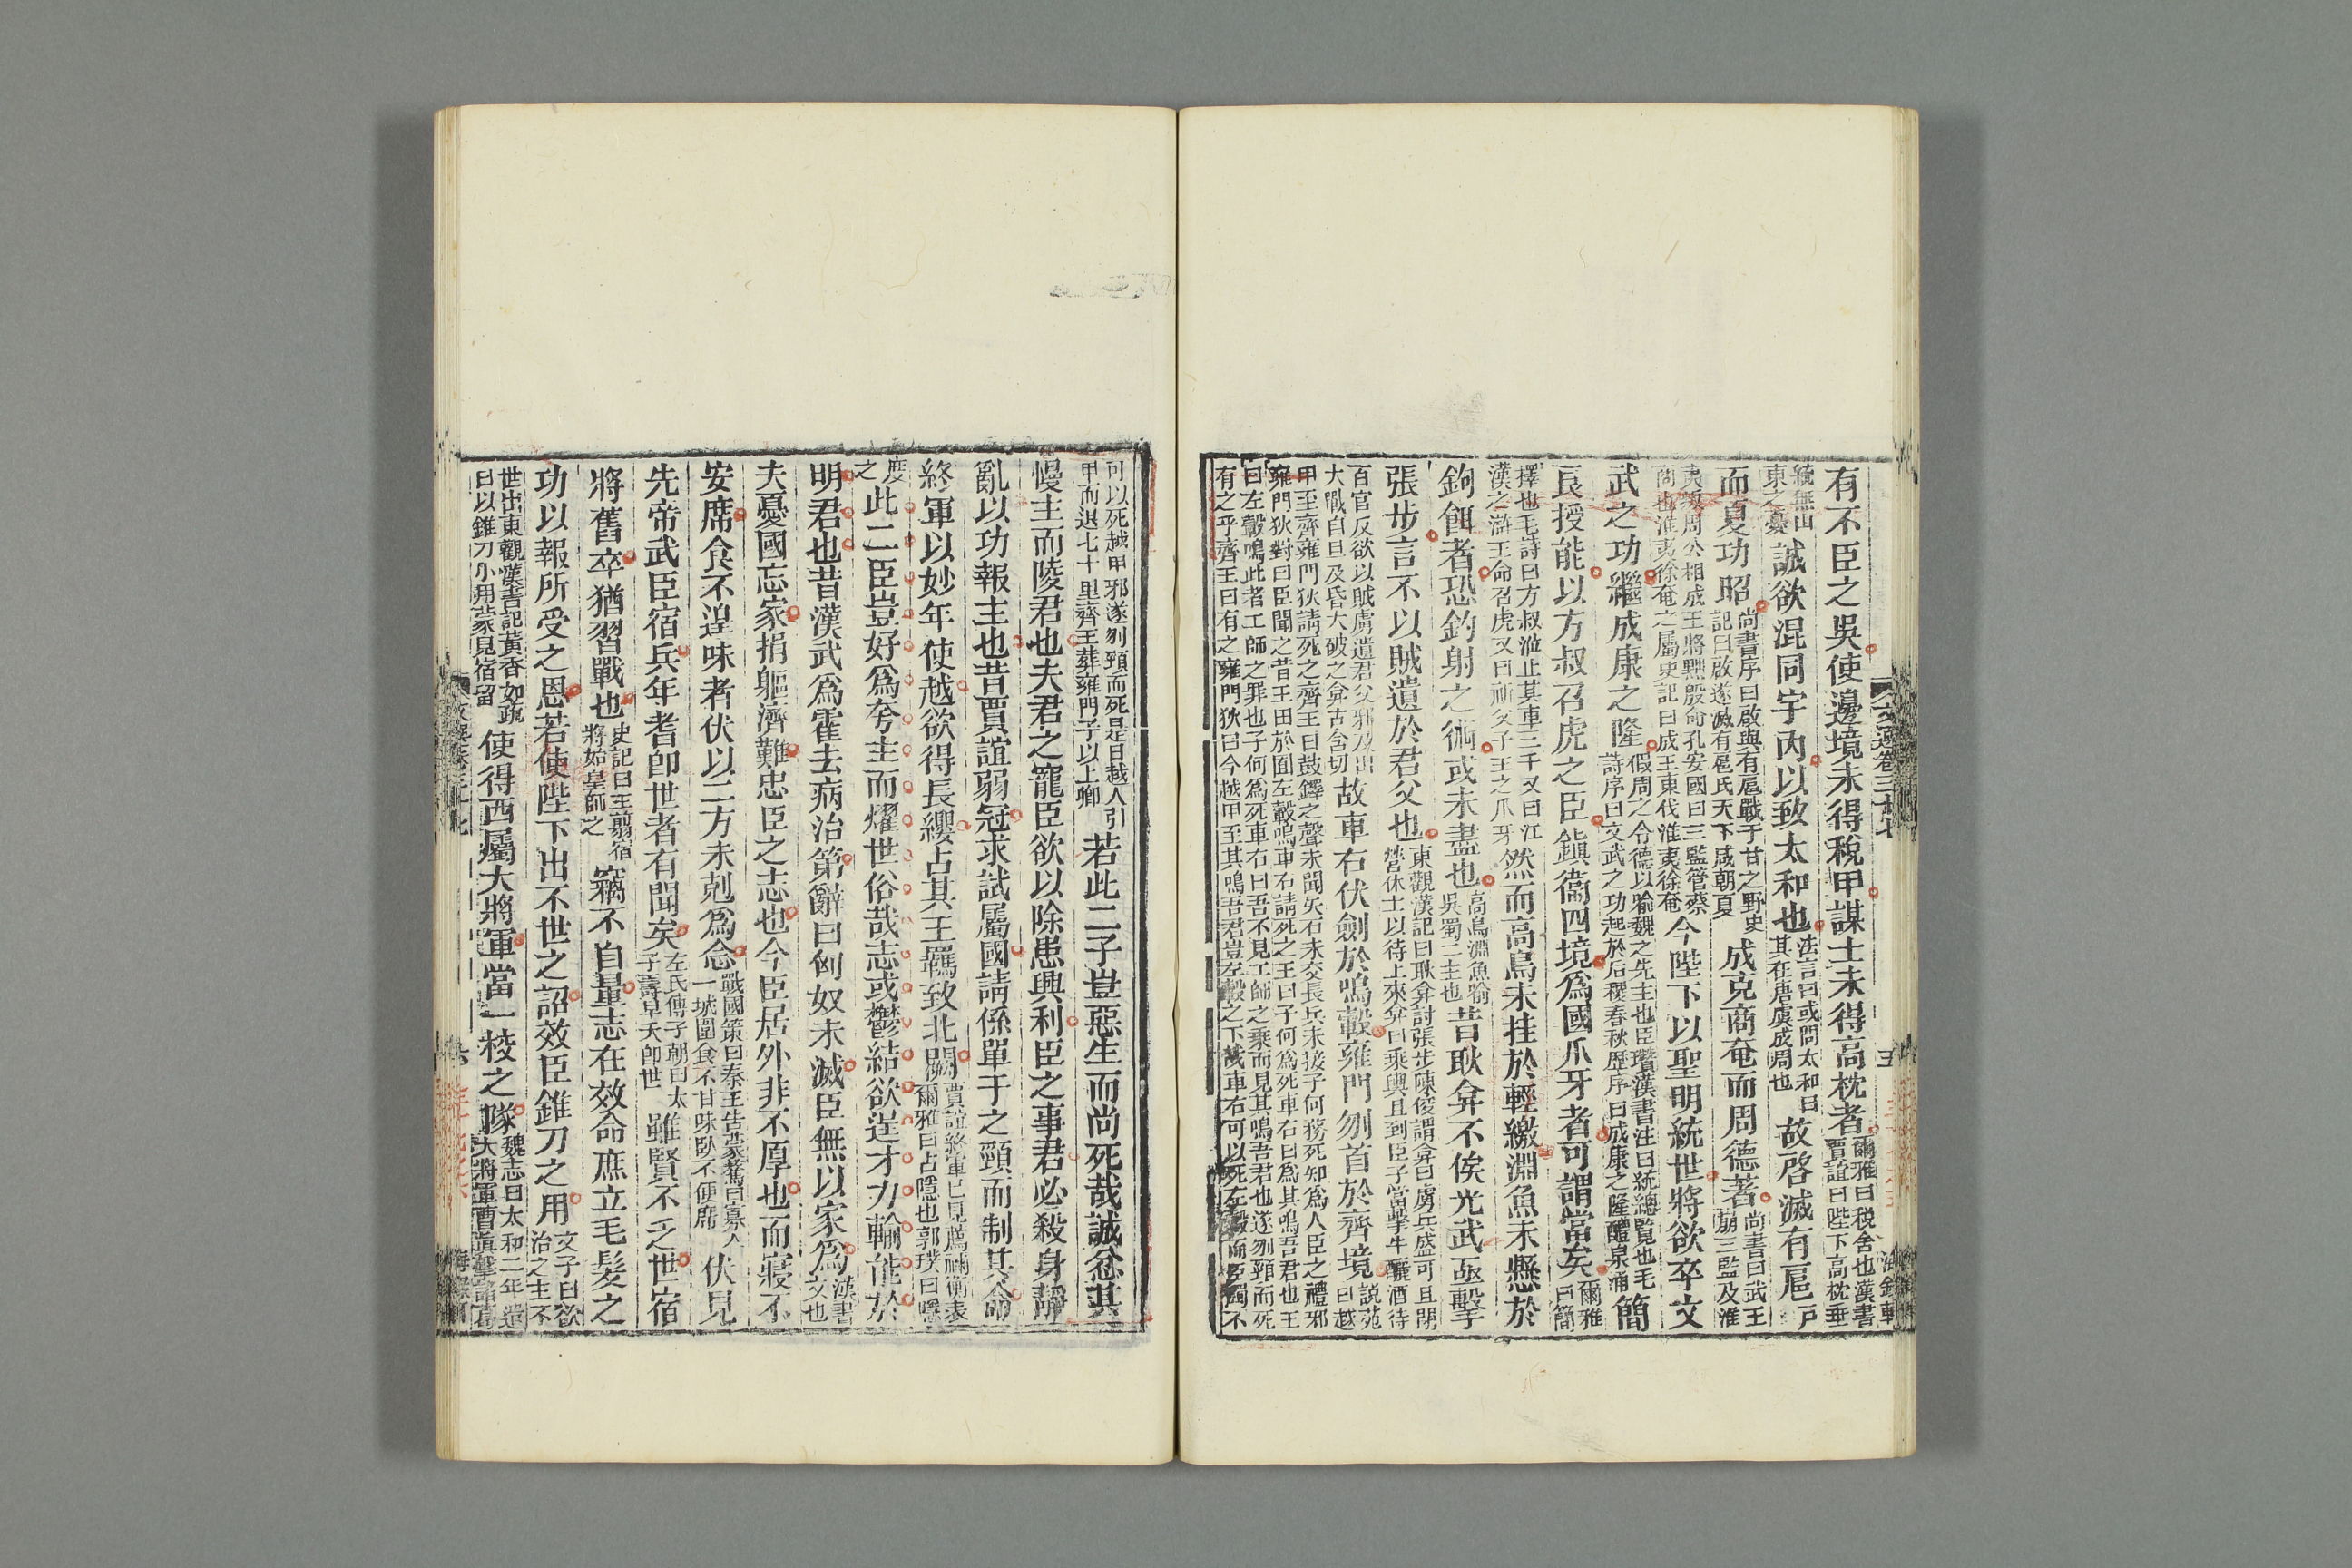 有不臣之吳使邊境未得稅甲謀士未得高枕者爾雅曰稅舍也漢書
賈誼曰陛下高枕垂
統無山
東之憂誠欲混同宇内以致太和也法言曰或問太和曰
其在唐虞成周也故啓滅有扈戸
而夏功昭尚書序曰啟與有扈戰于甘之野史
記曰啟遂滅有扈氏天下咸朝夏成克商奄而周德著尚書曰武王
崩三監及淮
夷叛周公相成王將黜殷命孔安國曰三監管蔡
商也淮夷徐奄之屬史記曰成王東伐淮夷徐奄今陛下以聖明統世將欲卒文
武之功繼成康之隆假周之令德以喻魏之先主也臣瓚漢書注曰統總覽也毛
詩序曰文武之功起於后稷春秋歷序曰成康之隆醴泉涌簡
良授能以方叔召虎之臣鎭衞四境爲國爪牙者可謂當矣爾雅
曰簡
擇也毛詩曰方叔涖止其車三千又曰江
漢之滸王命召虎又曰祈父予王之爪牙然而高鳥未挂於輕繳淵魚未懸於
鉤餌者恐釣射之術或未盡也高鳥淵魚喻
吳蜀二主也昔耿弇不俟光武亟擊
張步言不以賊遺於君父也東觀漢記曰耿弇討張步陳俊謂弇曰虜兵盛可且閉
營休士以待上來弇曰乘輿且到臣子當擊牛釃酒待
百官反欲以賊虜遺君父邪及出
大戰自旦及昏大破之弇古含切故車右伏劍於鳴轂雍門刎首於齊境說苑
曰越
甲至齊雍門狄請死之齊王曰鼓鐸之聲未聞矢石未交長兵未接子何務死知爲人臣之禮邪
雍門狄對曰臣聞之昔王田於囿左轂鳴車右請死之王曰子何爲死車右曰爲其鳴吾君也王
曰左轂鳴此者工師之罪也子何爲死車右曰吾不見工師之乘而見其鳴吾君也遂刎頸而死
有之乎齊王曰有之雍門狄曰今越甲至其鳴吾君豈左轂之下哉車右可以死左轂而臣獨不
可以死越甲邪遂刎頸而死是日越人引
甲而退七十里齊王葬雍門子以上卿若此二子豈惡生而尚死哉誠忿其
慢主而陵君也夫君之寵臣欲以除患興利臣之事君必殺身靜
亂以功報主也昔賈誼弱冠求試屬國請係單于之頸而制其命
終軍以妙年使越欲得長纓占其王羈致北闕賈誼終軍已見薦禰衡表
爾雅曰占隱也郭璞曰隱
度
之此二臣豈好爲夸主而燿世俗哉志或鬱結欲逞才力輸能於
明君也昔漢武爲霍去病治第辭曰匈奴未滅臣無以家爲漢書
文也
夫憂國忘家捐軀濟難忠臣之志也今臣居外非不厚也而寢不
安席食不遑味者伏以二方未剋爲念戰國策曰秦王告蒙驁曰寡人
一城圍食不甘味臥不便席伏見
先帝武臣宿兵年耆卽世者有聞矣左氏傳子朝曰太
子壽早夭卽世雖賢不乏世宿
將舊卒猶習戰也史記曰王翦宿
將始皇師之竊不自量志在效命庶立毛髮之
功以報所受之恩若使陛下出不世之詔效臣錐刀之用文子曰欲
治之主不
世出東觀漢書記黃香如疏
曰以錐刀小用蒙見宿留使得西屬大將軍當一校之隊魏志曰太和二年遣
大將軍曹眞擊諸葛
文選卷三十七
五
海錄軒
文選卷三十七
六
海錄軒